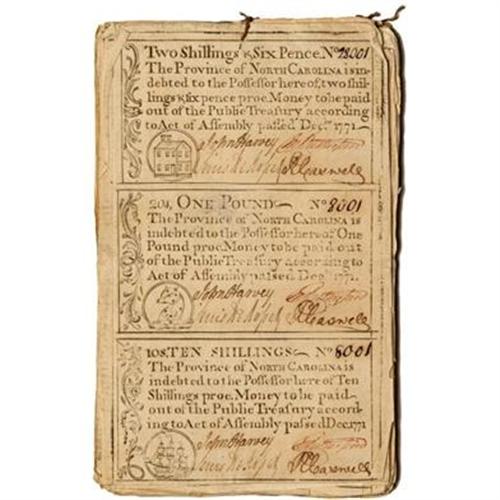 Two Shillings & Six Pence. No 28001
The Province of NORTH CAROLINA is in-
debted to the Possessor hereof, two shil-
lings & six pence proc. Money to be paid
out of the Public Treasury according
to Act of Assembly passed Decr. 1771.
John Harvey
Lewis De Rosset RCaswell
20s, ONE POUND No 8001
The Province of NORTH CAROLINA is
indebted to the Possessor here of One
Pound proc. Money to be paid out
of the Public Treasury according to
Act of Assembly passed Decr. 1771.
John Harvey
Lewis De Rosset RCaswell
10s. TEN SHILLINGS No 8001
The Province of NORTH CAROLINA is
indebted to the Possessor here of Ten
Shillings proc. Money to be paid
out of the Public Treasury accord-
ing to Act of Assembly passed Decr 1771
John Harvey
Lewis De Rosset RCaswell